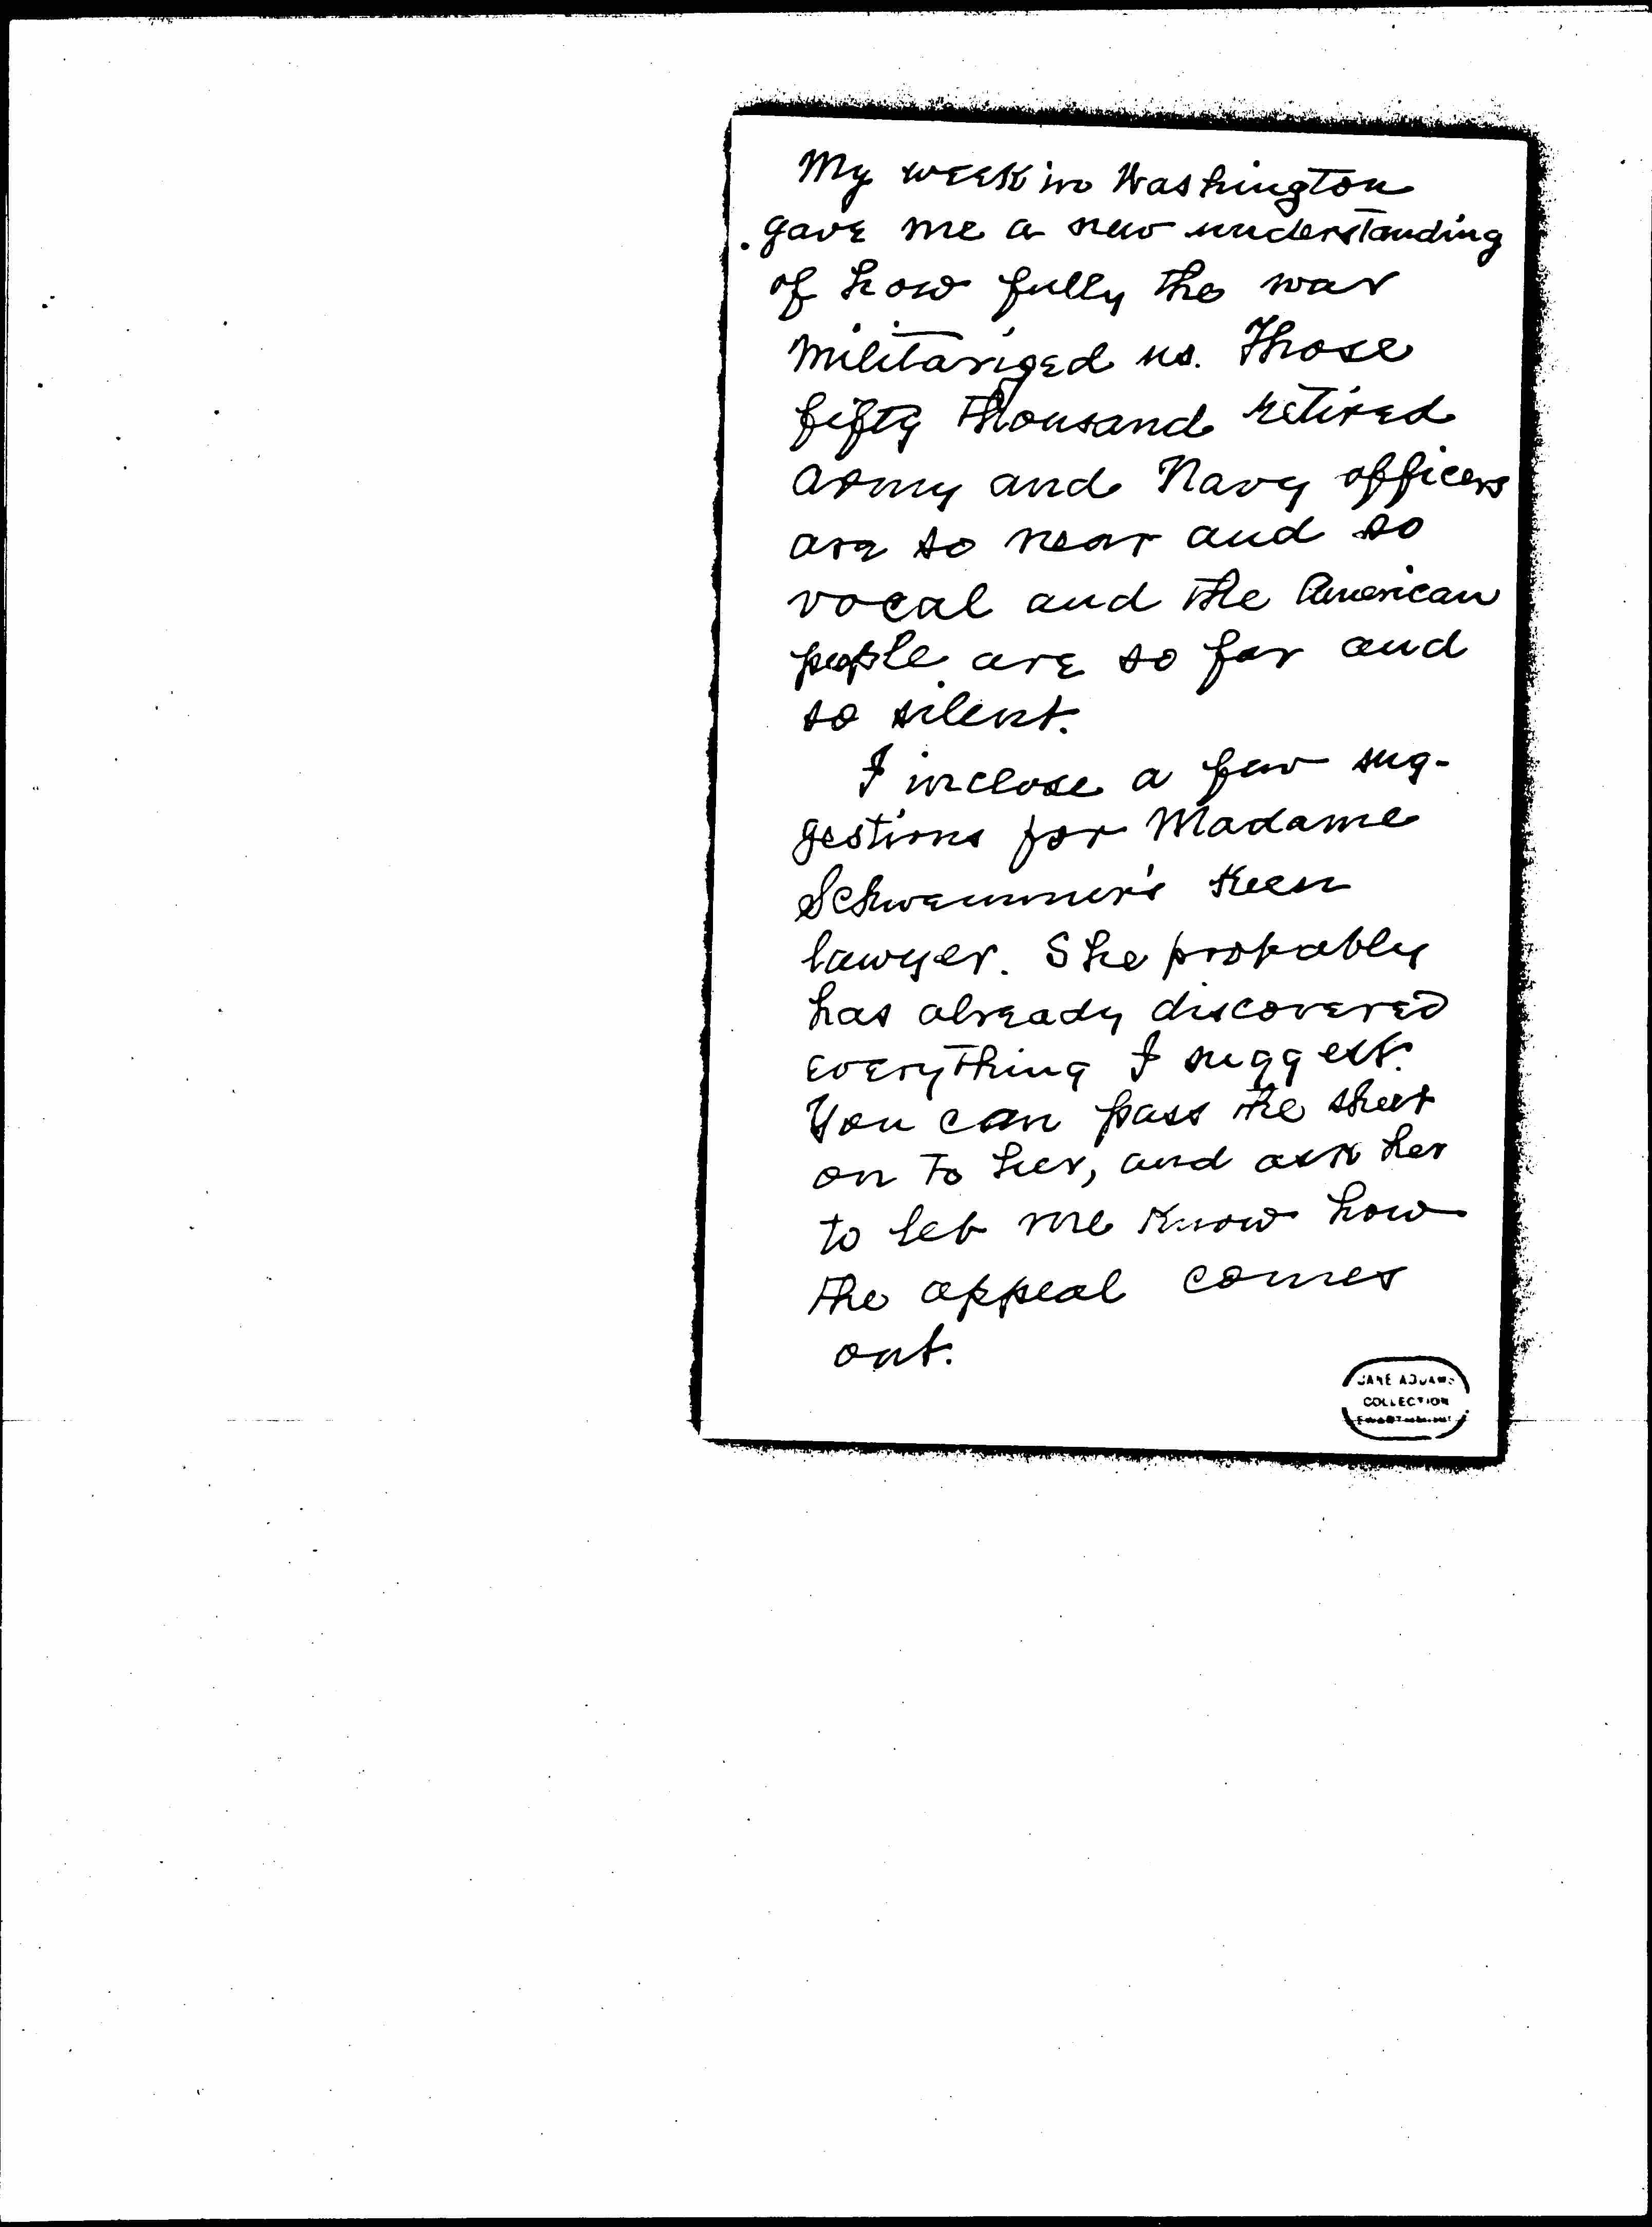 My week in Washington
gave me a new understanding
of how fully the war
militarized us. Those
fifty thousand retired
army and Navy officers
are so near and so
vocal and the American
people are so far and
so silent.
I inclose a few sug-
gestions for Madame
Schwemmer's keen
lawyer. She probably
has already discovered
everything I suggest.
You can pass the sheet
on to her, and ask her
to let me know how
the appeal comes
out.
JANE ADDAMS
COLLECTION